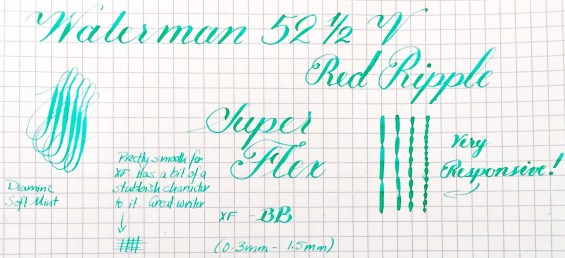 Waterman 52 1/2 V
Red Ripple
Super
Flex
Very
Responsive!
Pretty smooth for
XF. Has a bit of a
stubbish character
to it. Great writer
Diamine
Soft Mint
XF - BB
(0.3mm - 1.5mm)